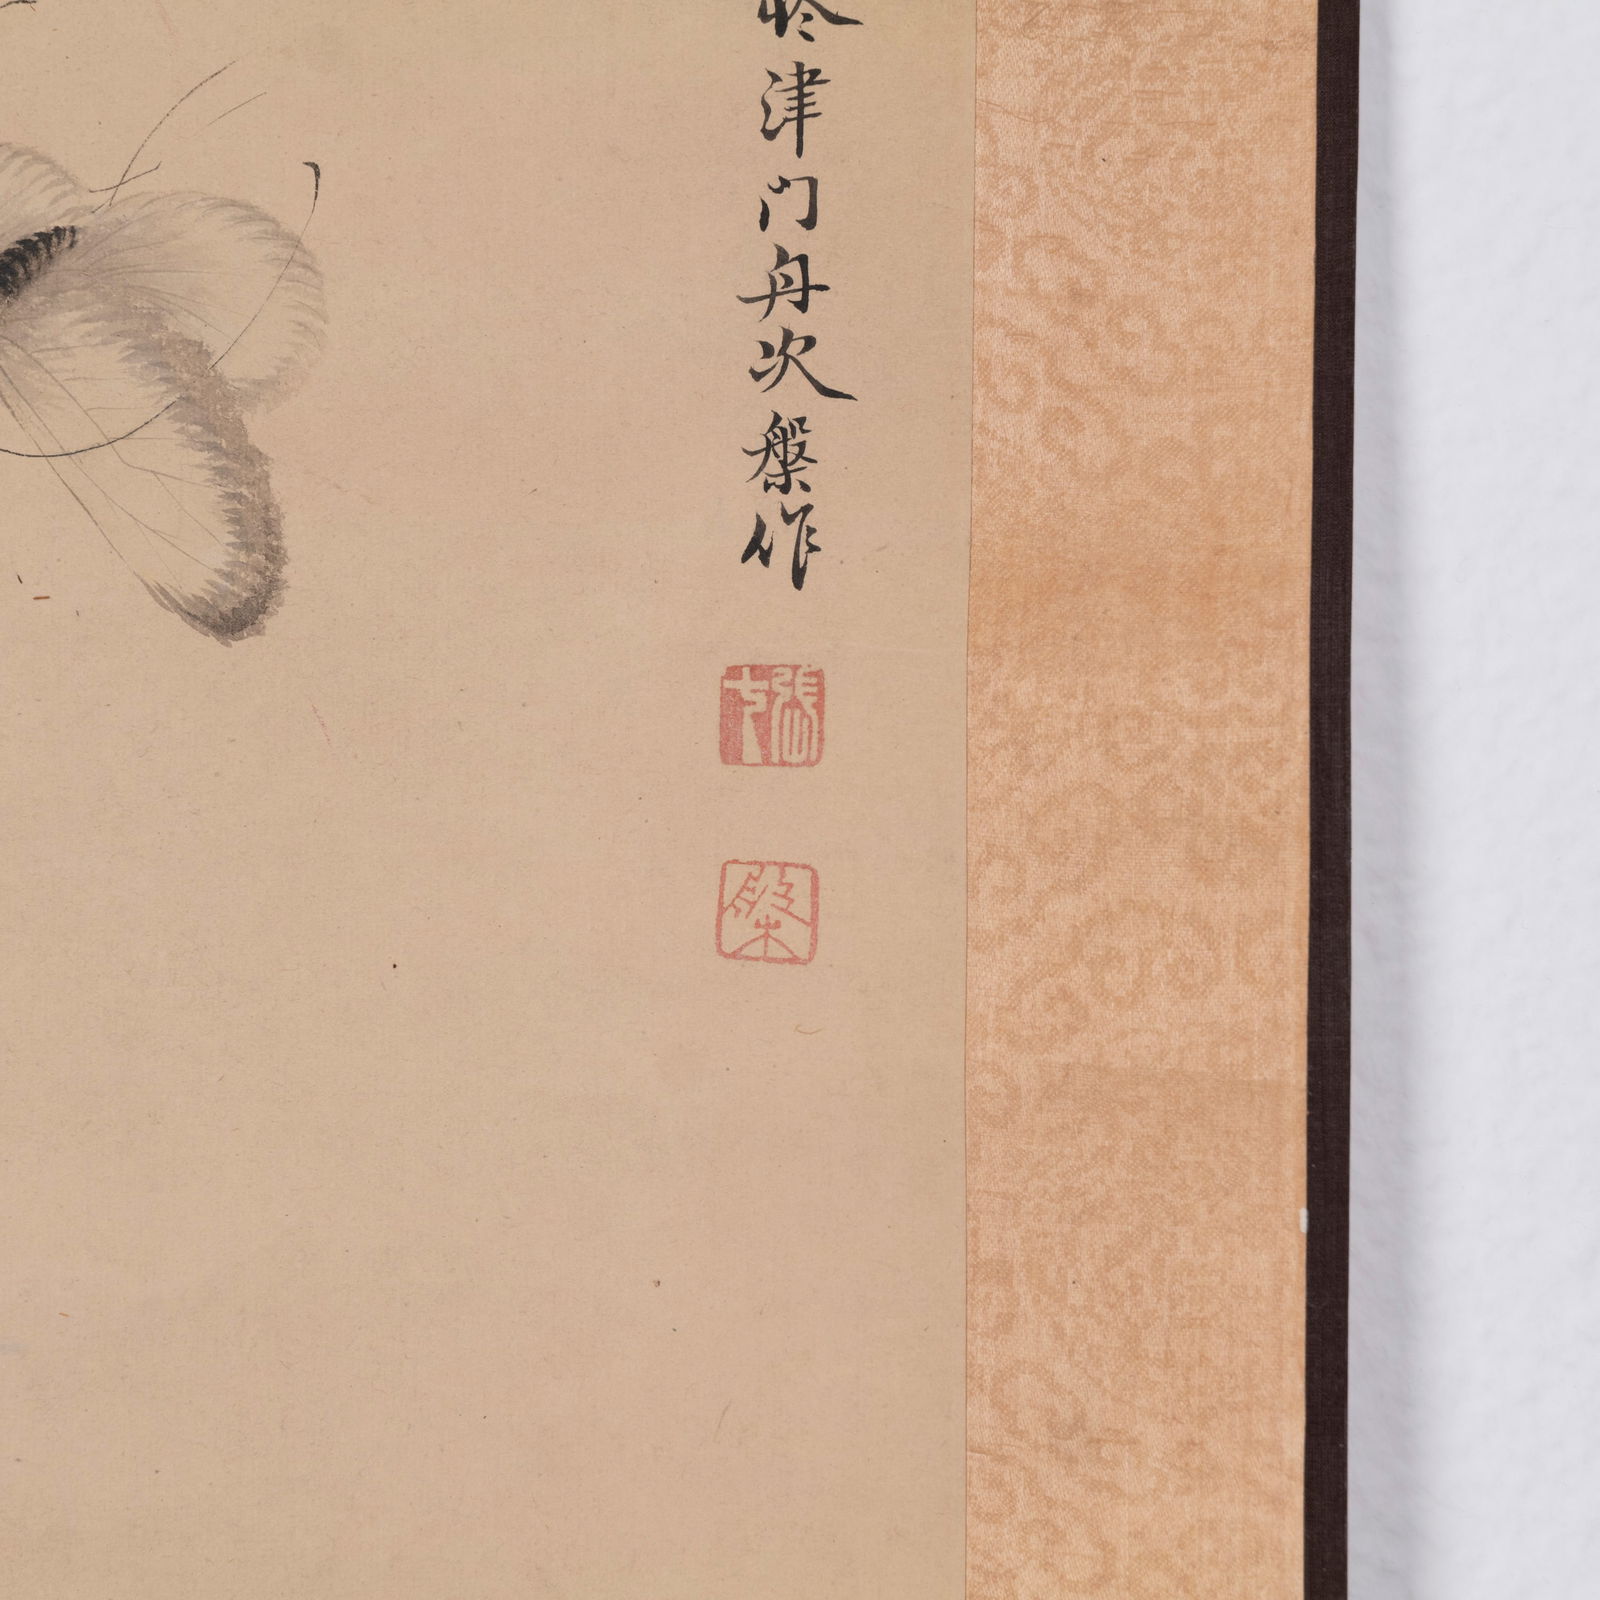 津门舟次槃作
張七
槃